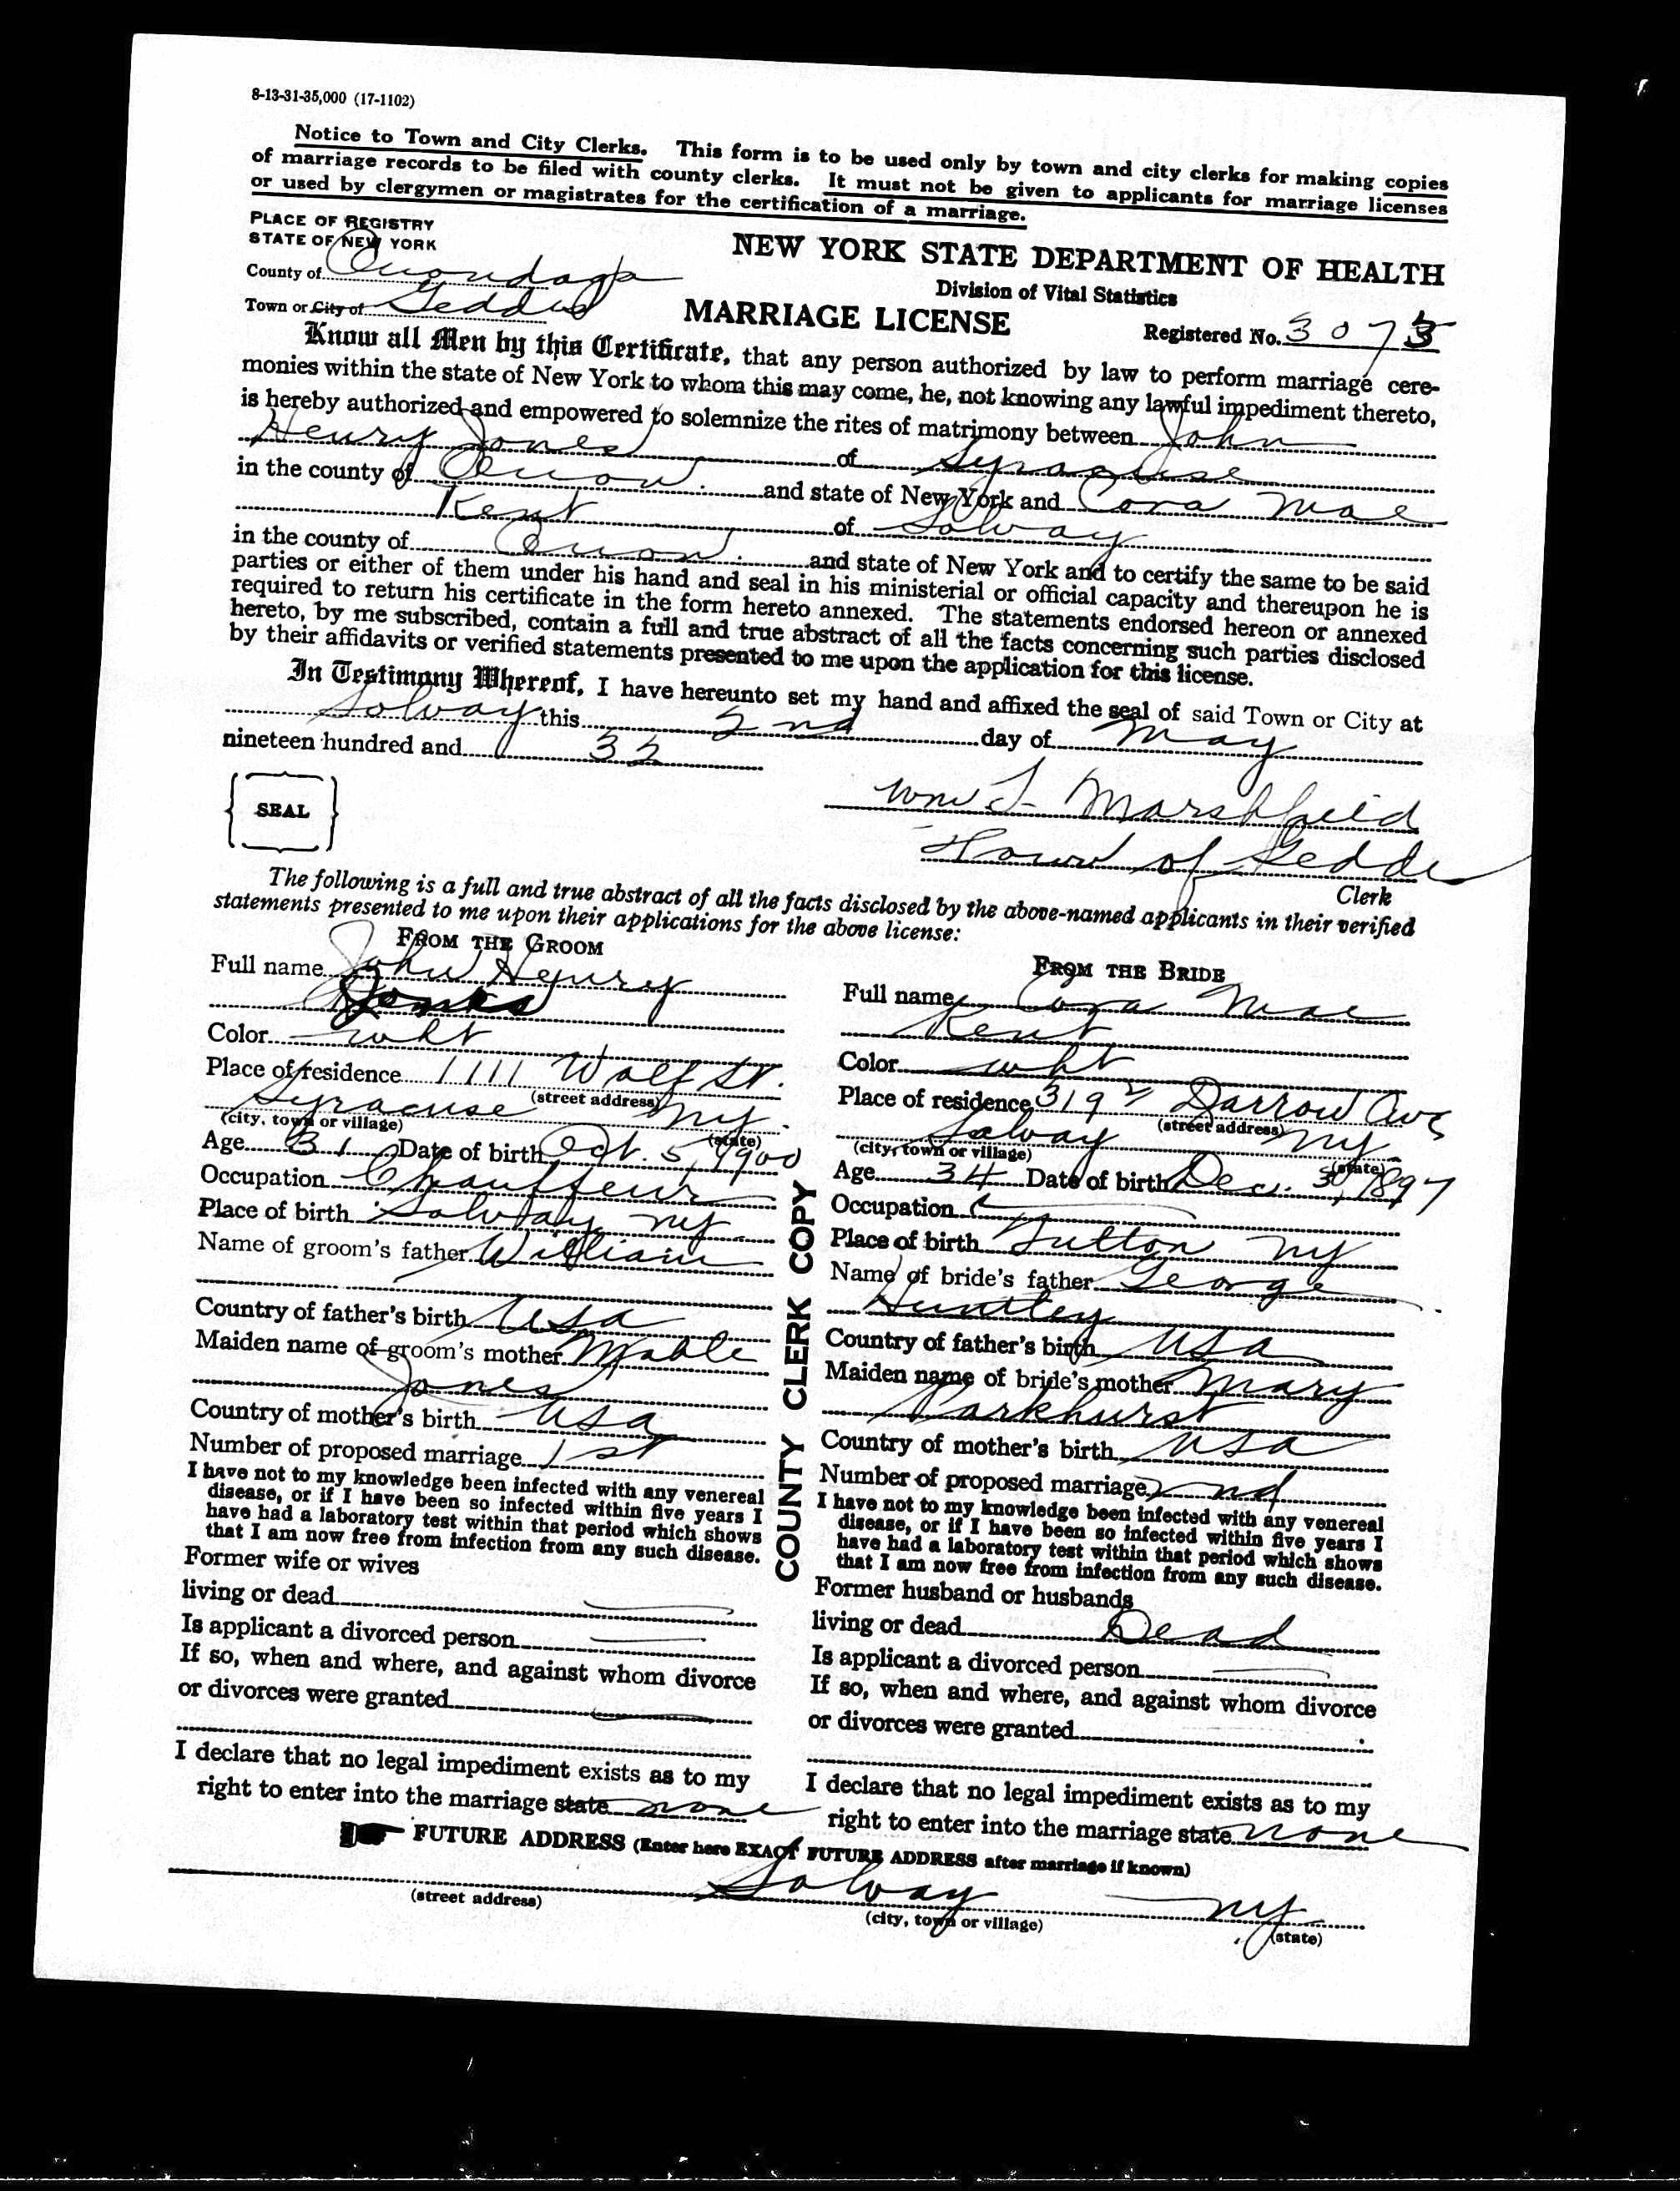 8-13-31-35,000 (17-1102)
Notice to Town and City Clerks. This form is to be used only by town and city clerks for making copies
of marriage records to be filed with county clerks. It must not be given to applicants for marriage licenses
or used by clergymen or magistrates for the certification of a marriage.
PLACE OF REGISTRY
STATE OF NEW YORK
County of Onondaga
Town or City of Geddes
NEW YORK STATE DEPARTMENT OF HEALTH
Division of Vital Statistics
MARRIAGE LICENSE
Registered No. 307
Know all Men by this Certificate, that any person authorized by law to perform marriage cere-
monies within the state of New York to whom this may come, he, not knowing any lawful impediment thereto,
is hereby authorized and empowered to solemnize the rites of matrimony between John
Henry Jones of Syracuse
in the county of Onon. and state of New York and Cora Mae
Kent of Solvay
in the county of Onon. and state of New York and to certify the same to be said
parties or either of them under his hand and seal in his ministerial or official capacity and thereupon he is
required to return his certificate in the form hereto annexed. The statements endorsed hereon or annexed
hereto, by me subscribed, contain a full and true abstract of all the facts concerning such parties disclosed
by their affidavits or verified statements presented to me upon the application for this license.
In Testimony Whereof, I have hereunto set my hand and affixed the seal of said Town or City at
Solvay this 2nd day of May
nineteen hundred and 32
SEAL
Wm Marshfield
Town of Geddes
Clerk
The following is a full and true abstract of all the facts disclosed by the above-named applicants in their verified
statements presented to me upon their applications for the above license:
FROM THE GROOM
Full name John Henry
Jones
Color wht
Place of residence 1111 Wolf St.
(street address)
Syracuse NY.
(city, town or village) (state)
Age 31 Date of birth Oct. 5, 1900
Occupation Chauffeur
Place of birth Solvay NY
Name of groom's father William
Country of father's birth USA
Maiden name of groom's mother Mable
Jones
Country of mother's birth USA
Number of proposed marriage 1st
I have not to my knowledge been infected with any venereal
disease, or if I have been so infected within five years I
have had a laboratory test within that period which shows
that I am now free from infection from any such disease.
Former wife or wives
living or dead
Is applicant a divorced person
If so, when and where, and against whom divorce
or divorces were granted
I declare that no legal impediment exists as to my
right to enter into the marriage state none
COUNTY CLERK COPY
FROM THE BRIDE
Full name Cora Mae
Kent
Color wht
Place of residence 319 Darrow Ave
(street address)
Solvay NY
(city, town or village) (state)
Age 34 Date of birth Dec. 30, 1897
Occupation
Place of birth Fulton NY
Name of bride's father George
Huntley
Country of father's birth USA
Maiden name of bride's mother Mary
Parkhurst
Country of mother's birth USA
Number of proposed marriage 2nd
I have not to my knowledge been infected with any venereal
disease, or if I have been so infected within five years I
have had a laboratory test within that period which shows
that I am now free from infection from any such disease.
Former husband or husbands
living or dead Dead
Is applicant a divorced person
If so, when and where, and against whom divorce
or divorces were granted
I declare that no legal impediment exists as to my
right to enter into the marriage state none
FUTURE ADDRESS (Enter here EXACT FUTURE ADDRESS after marriage if known)
Solvay NY
(street address) (city, town or village) (state)